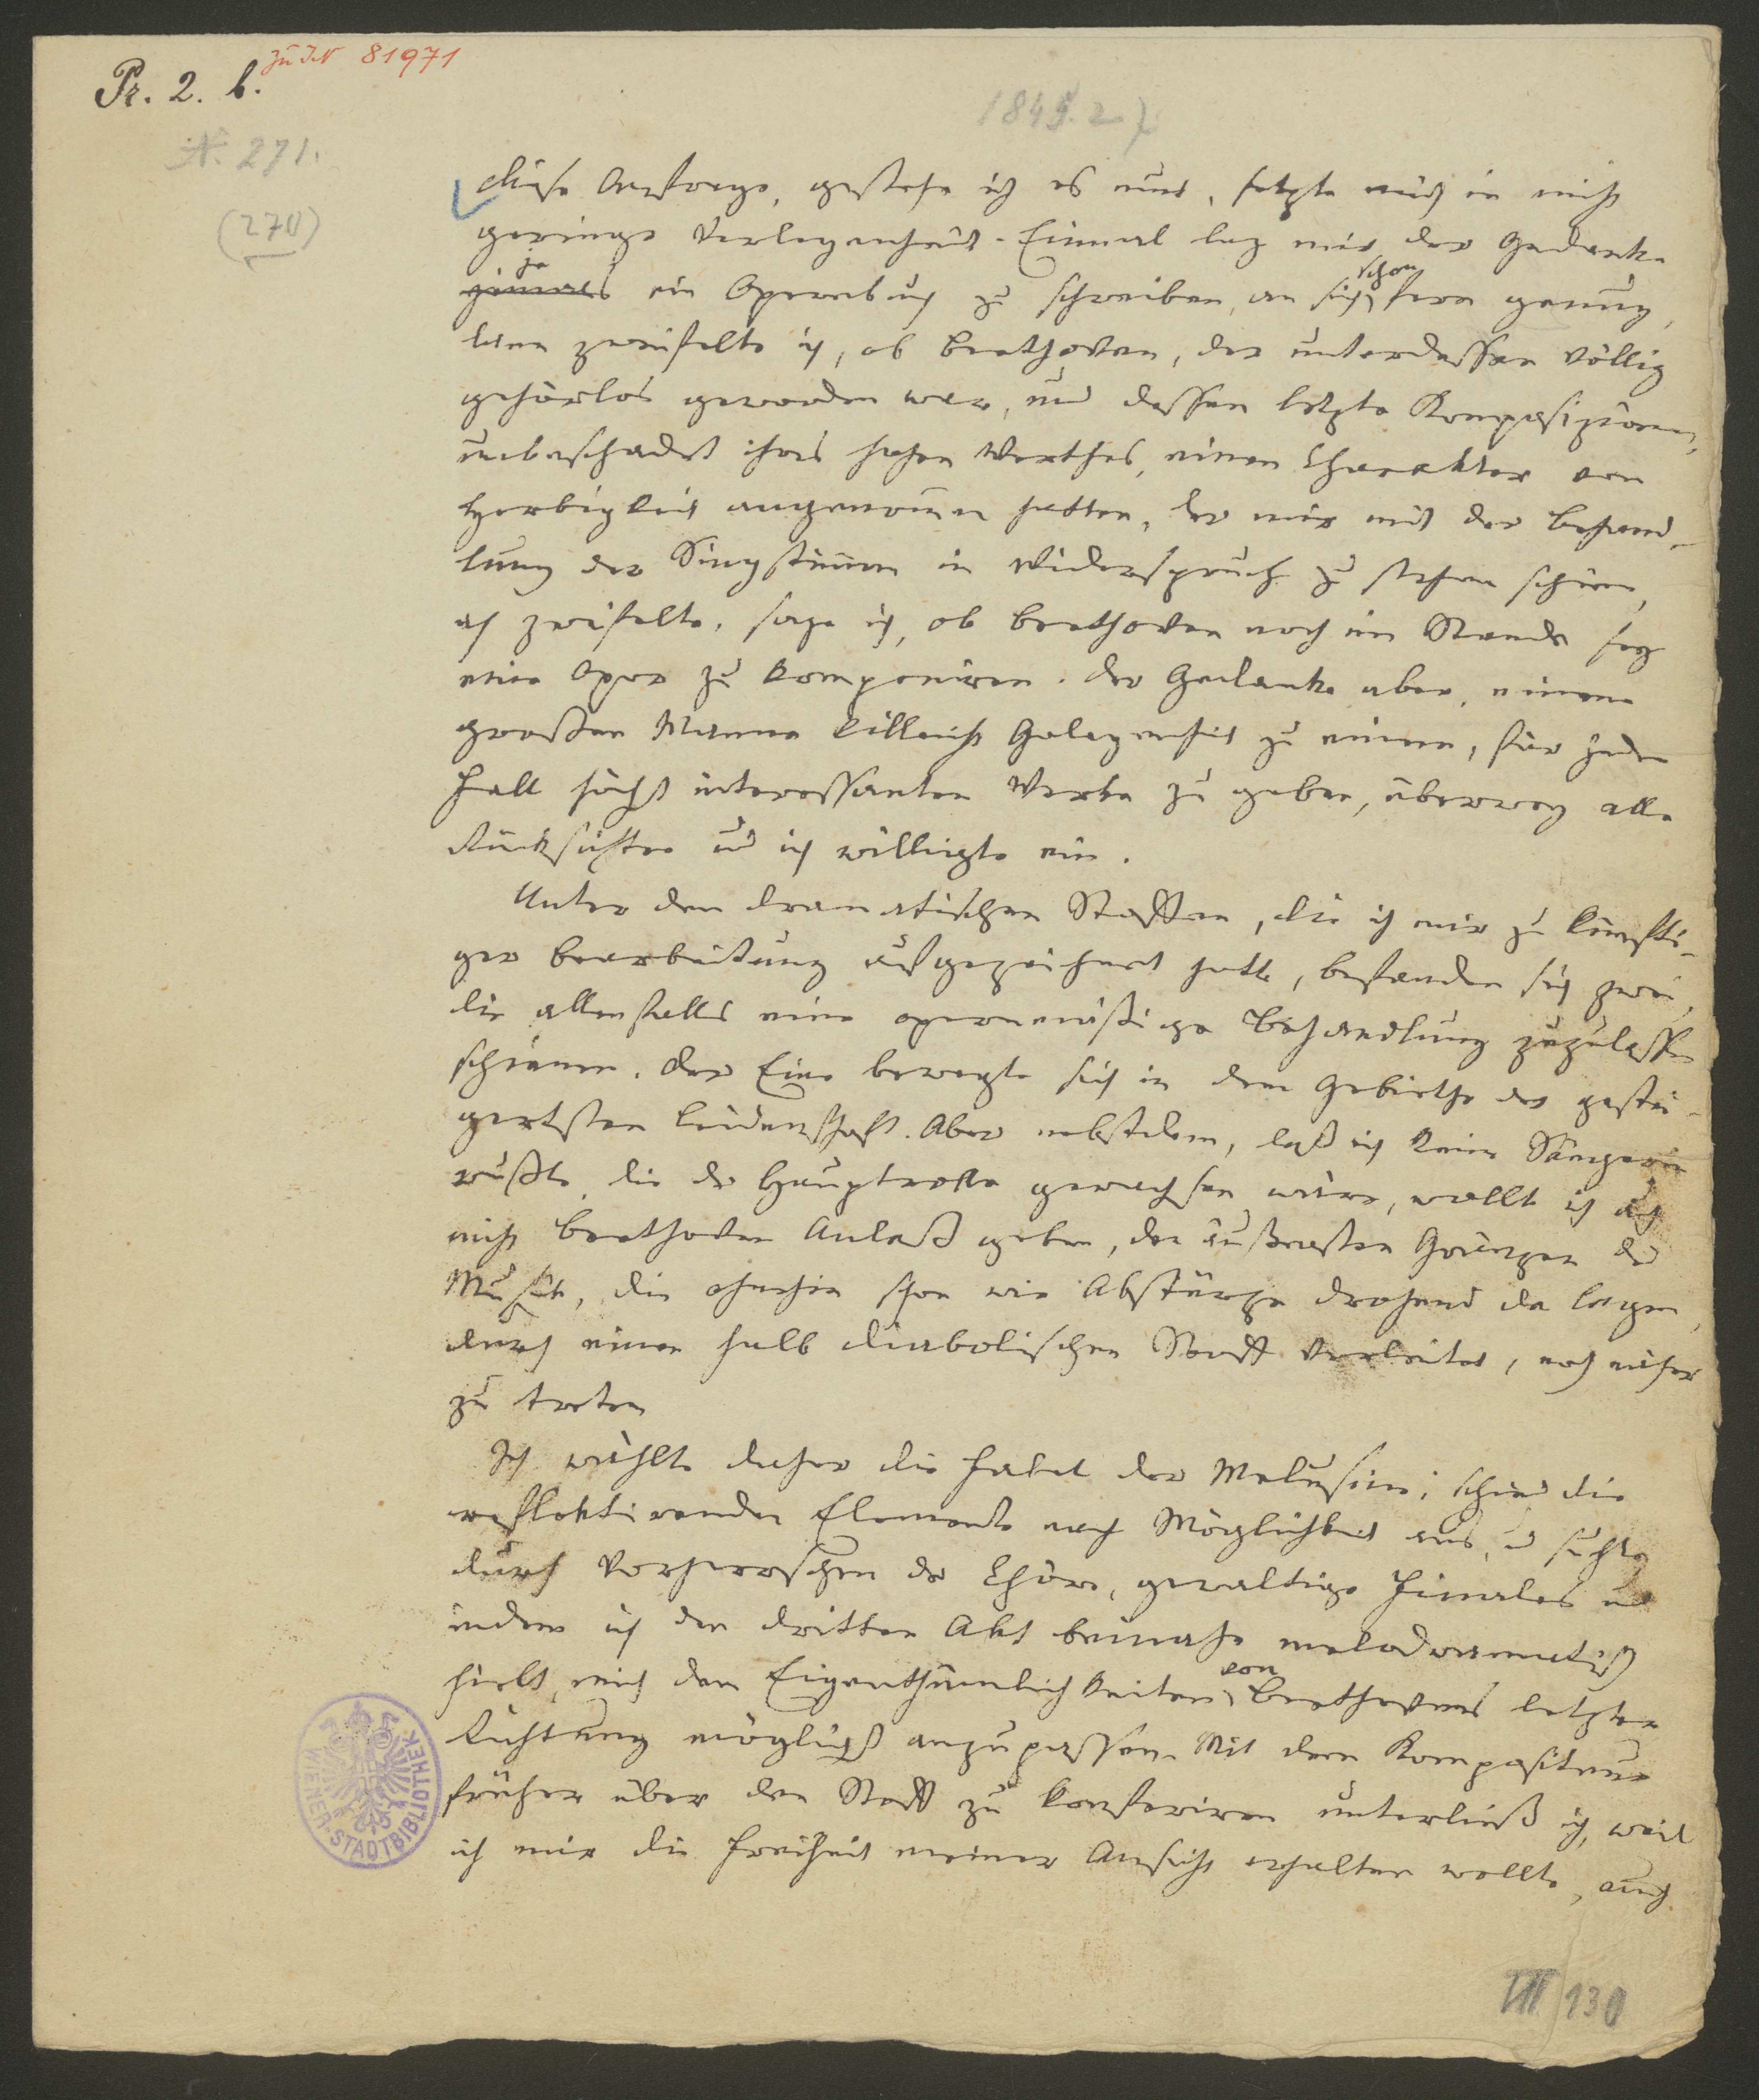 Pr. 2. b.
zu IN 81971
1849.2.)
N. 271.
(270)
Diese Anfrage, gestehe ich es nur, setzte mich in nicht
geringe Verlegenheit. Einmal lag mir der Gedanke
jemals je ein Opernbuch zu schreiben, an sich schon fern genug,
dann zweifelte ich, ob Beethoven, der unterdessen völlig
gehörlos geworden war, und dessen letzte Kompositionen,
unbeschadet ihres hohen Werthes, einen Charakter von
Herbigkeit angenomen hatten, der mir mit der Behand-
lung der Singstimmen in Widerspruch zu stehen schien,
ich zweifelte, sage ich, ob Beethoven noch im Stande sey
eine Oper zu komponiren. Der Gedanke aber, einem
großen Manne vielleicht Gelegenheit zu einem, für jeden
Fall höchst interessanten Werke zu geben, überwog alle
Rücksichten und ich willigte ein.
Unter den dramatischen Stoffen, die ich mir zu künfti-
ger Bearbeitung aufgezeichnet hatte, befanden sich zwei,
die allenfalls eine opernmäßige Behandlung zuzulassen
schienen. Der Eine bewegte sich in dem Gebiethe der gestei-
gertsten Leidenschaft. Aber nebstdem, daß ich keine Sängerin
wußte, die der Hauptrolle gewachsen wäre, wollt ich auch
nicht Beethoven Anlaß geben, den äußersten Gränzen der
Musik, die ohnehin schon wie Abstürze drohend da lagen,
durch einen halb diabolischen Stoff verleitet, noch näher
zu treten
Ich wählte daher die Fabel der Melusine; schied die
reflektirenden Elemente nach Möglichkeit aus, u suchte
durch Vorherrschen der Chöre, gewaltige Finales und
indem ich den dritten Akt beinahe melodramatisch
hielt, mich den Eigenthümlichkeiten von Beethovens letzter
Richtung möglichst anzupassen. Mit dem Kompositeur
früher über den Stoff zu konferiren unterließ ich, weil
ich mir die Freiheit meiner Ansicht erhalten wollte, auch
WIENER-STADTBIBLIOTHEK
III 130